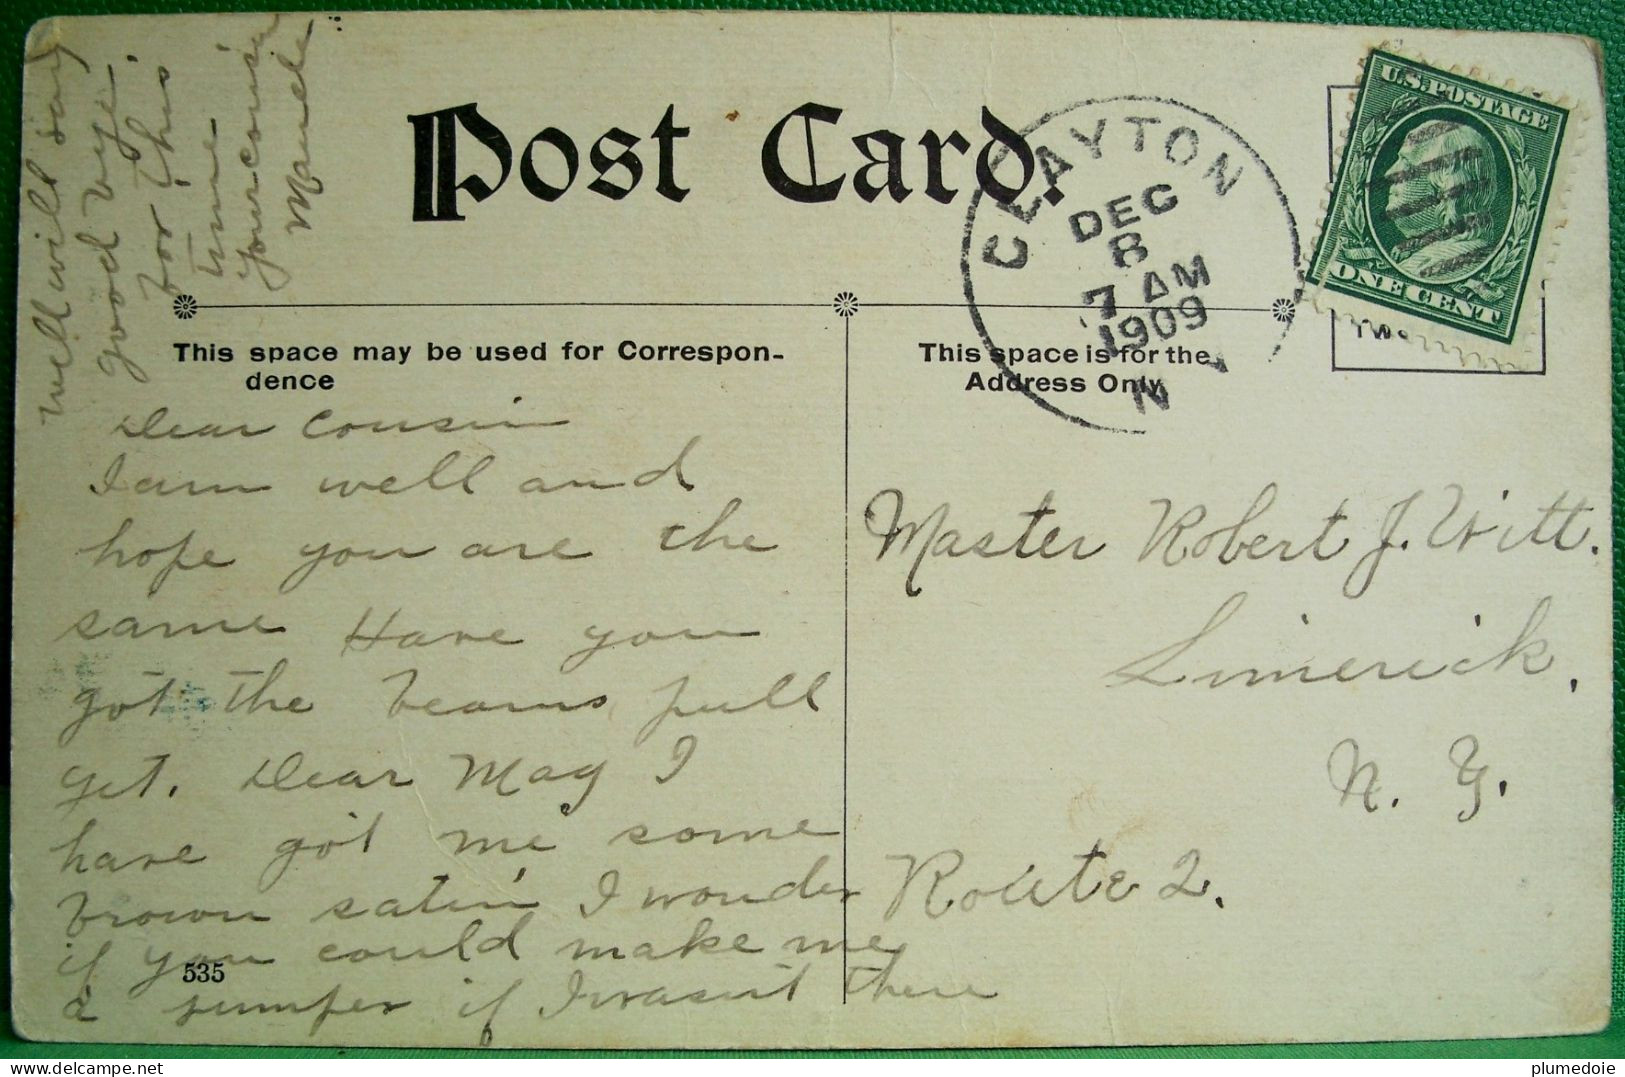 well will say
good bye.
for this
time-
your cousin
Maude
Post Card.
CLAYTON
DEC
8
7 AM
1909
N
U.S. POSTAGE
ONE CENT
This space may be used for Correspon-
dence
This space is for the
Address Only
Dear Cousin
I am well and
hope you are the
same Have you
got the beans pull
yet. Dear May I
have got me some
brown satin I wonder
if you could make me
a jumper if I wasn't there
535
Master Robert J. Witt.
Limerick,
N. Y.
Route 2.
plumedoie